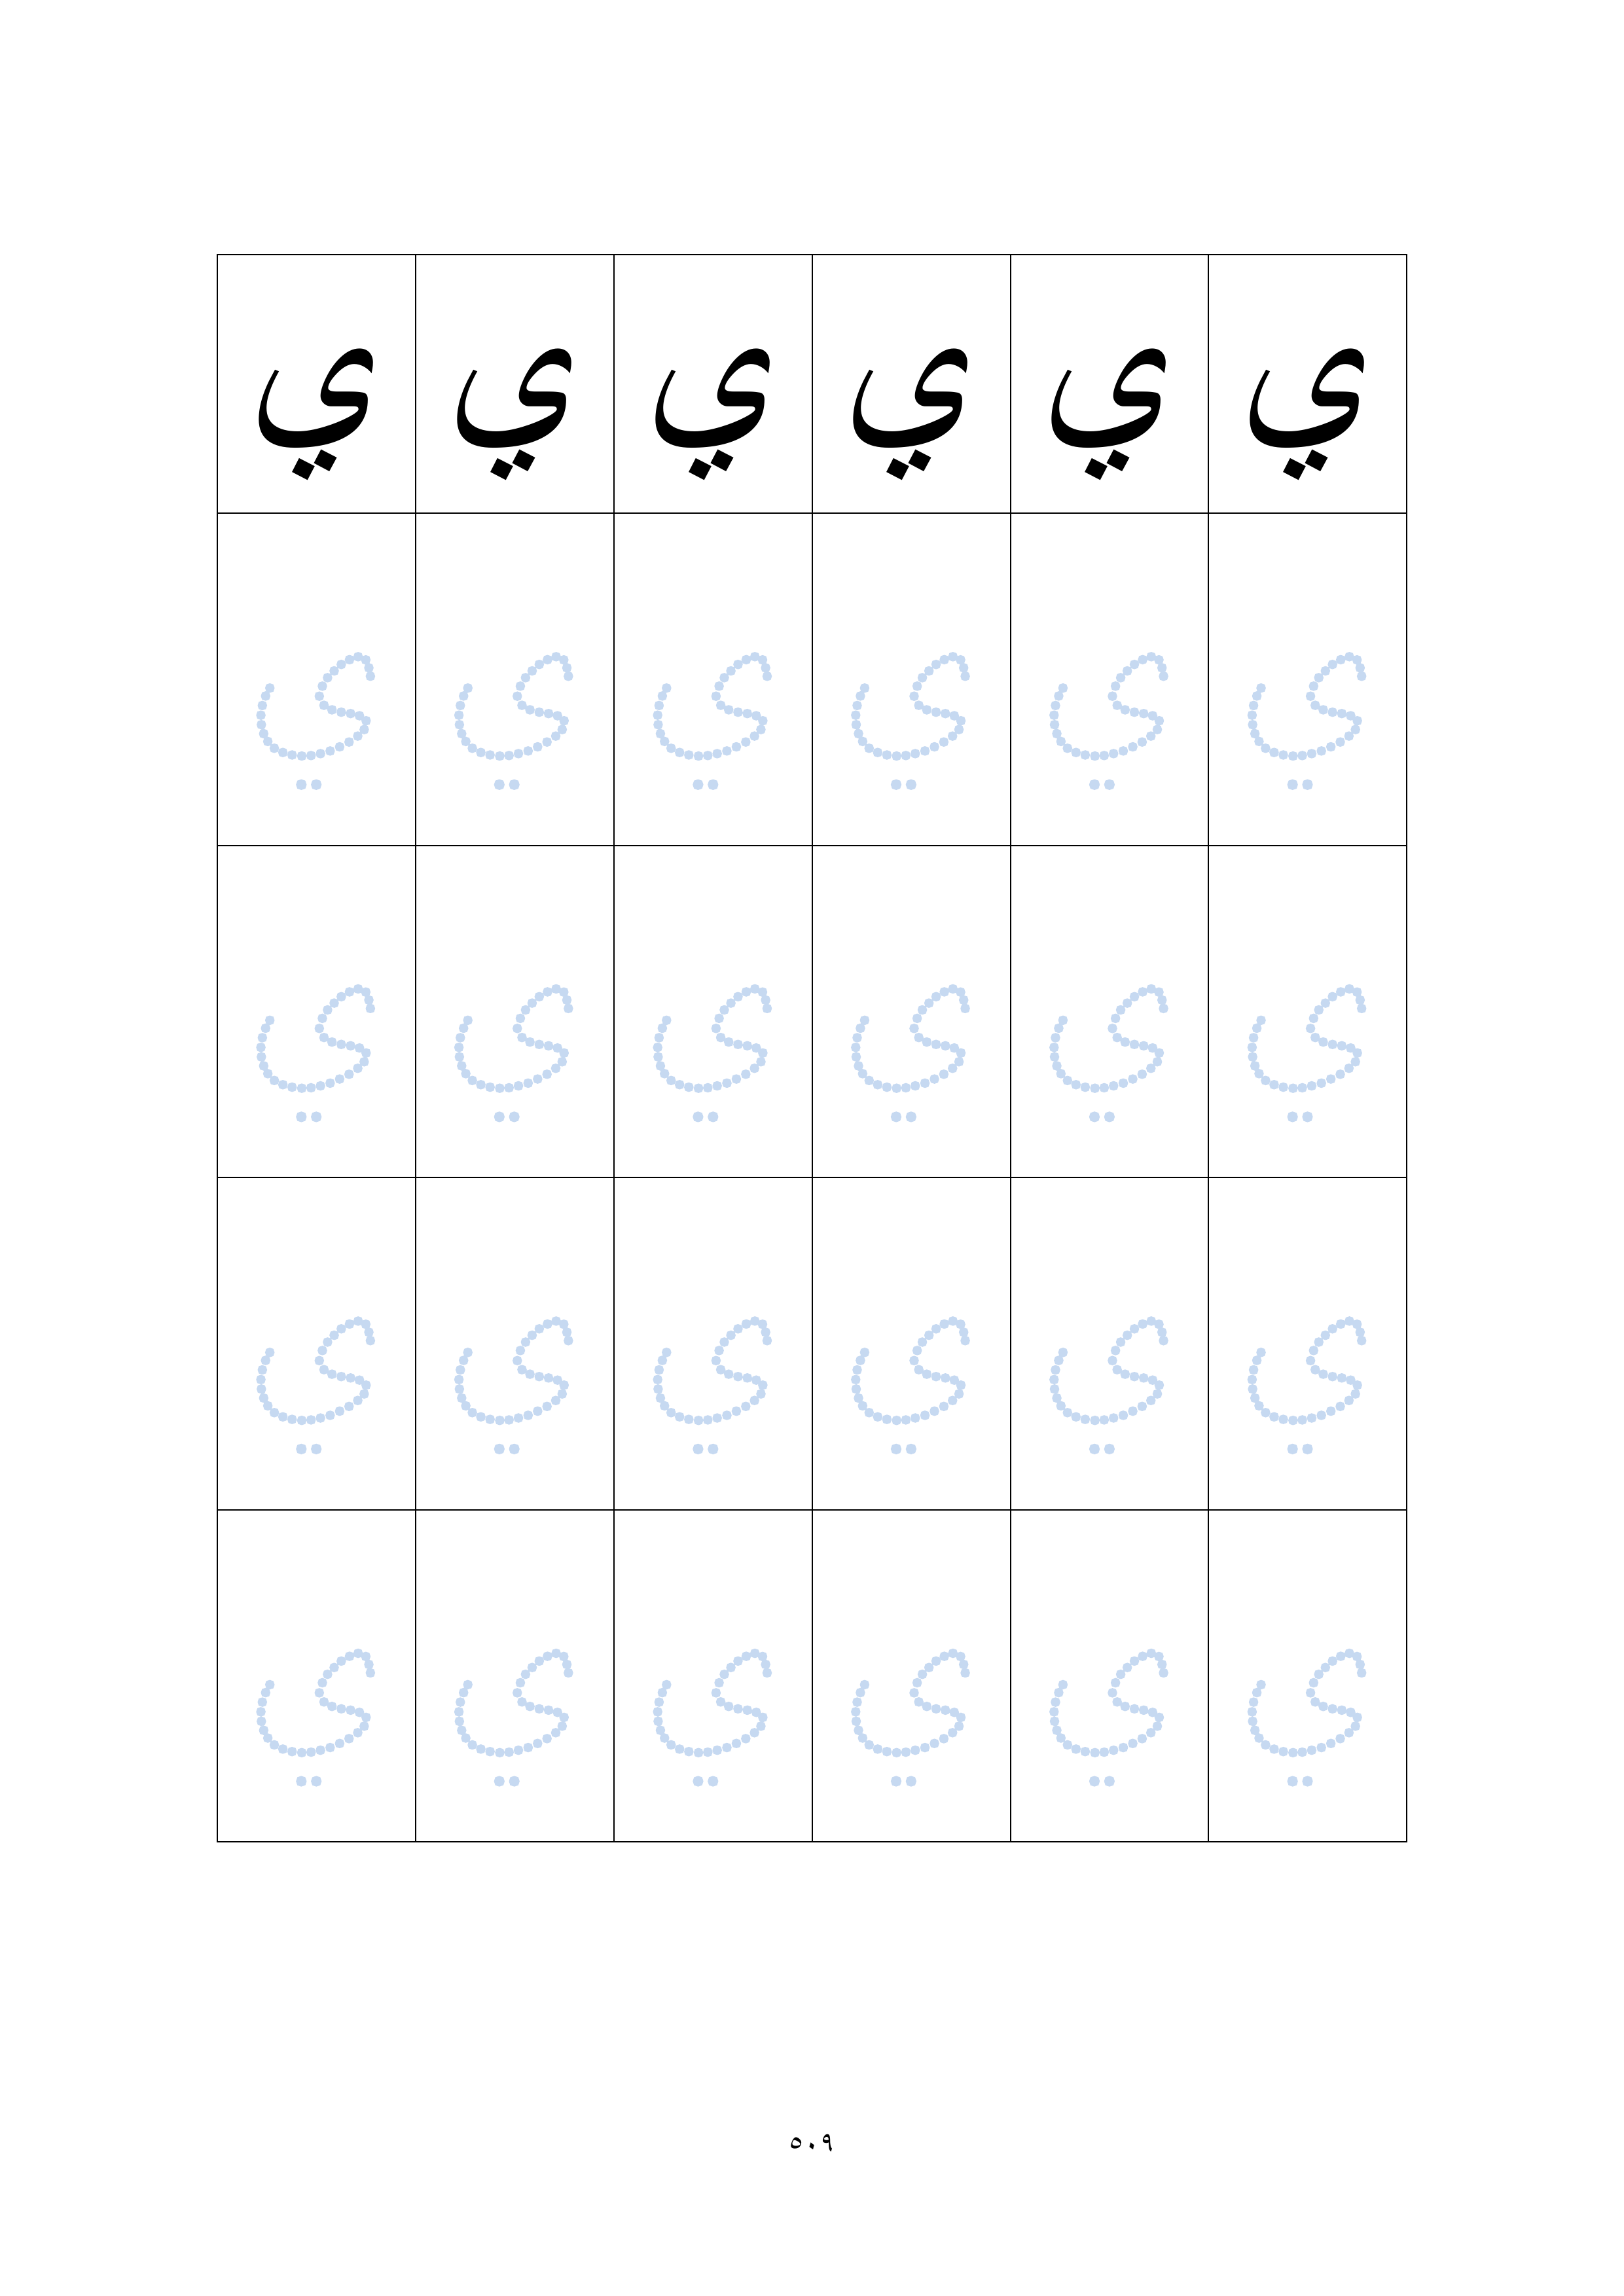 ي ي ي ي ي ي
ي ي ي ي ي ي
ي ي ي ي ي ي
ي ي ي ي ي ي
ي ي ي ي ي ي
٥٠٩